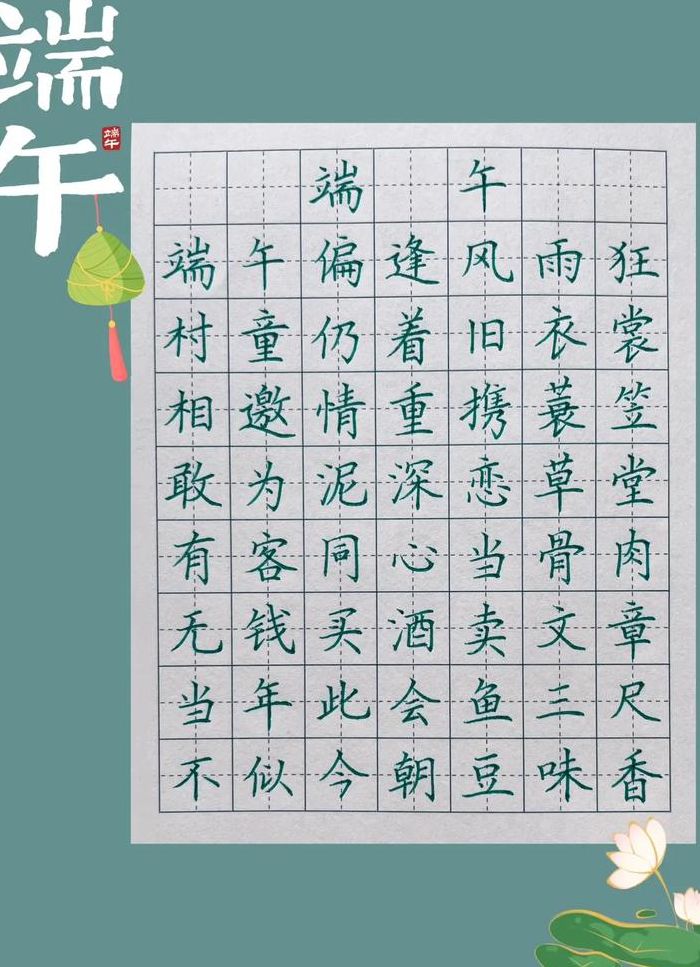 端午
端午
端午
端午偏逢风雨狂
村童仍着旧衣裳
相邀情重携蓑笠
敢为泥深恋草堂
有客同心当骨肉
无钱买酒卖文章
当年此会鱼三尺
不似今朝豆味香